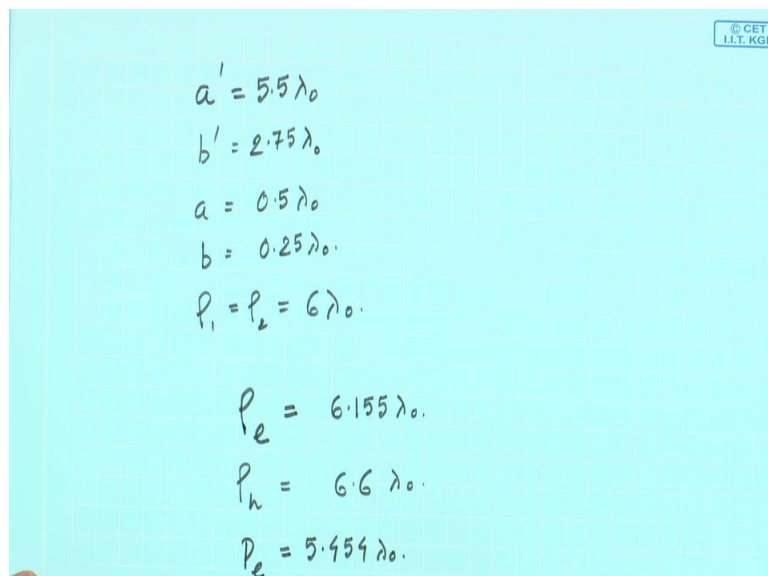 © CET
I.I.T. KGP
a' = 5.5 λ₀
b' = 2.75 λ₀
a = 0.5 λ₀
b = 0.25 λ₀.
ρ₁ = ρ₂ = 6 λ₀.
ρₑ = 6.155 λ₀.
ρₕ = 6.6 λ₀.
Pₑ = 5.454 λ₀.